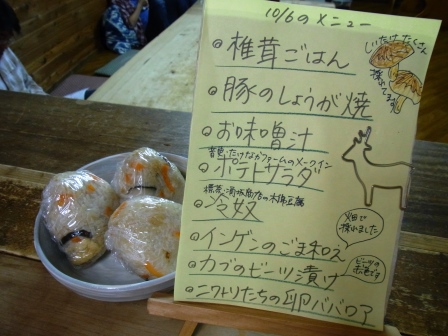 10/6のメニュー
椎茸ごはん
しいたけたくさん
採れてます
豚のしょうが焼
お味噌汁
ポテトサラダ
冷奴
インゲンのごま和え
畑で
採れました
カブのビーツ漬け
ビーツの
赤色です
ニワトリたちの卵ババロア